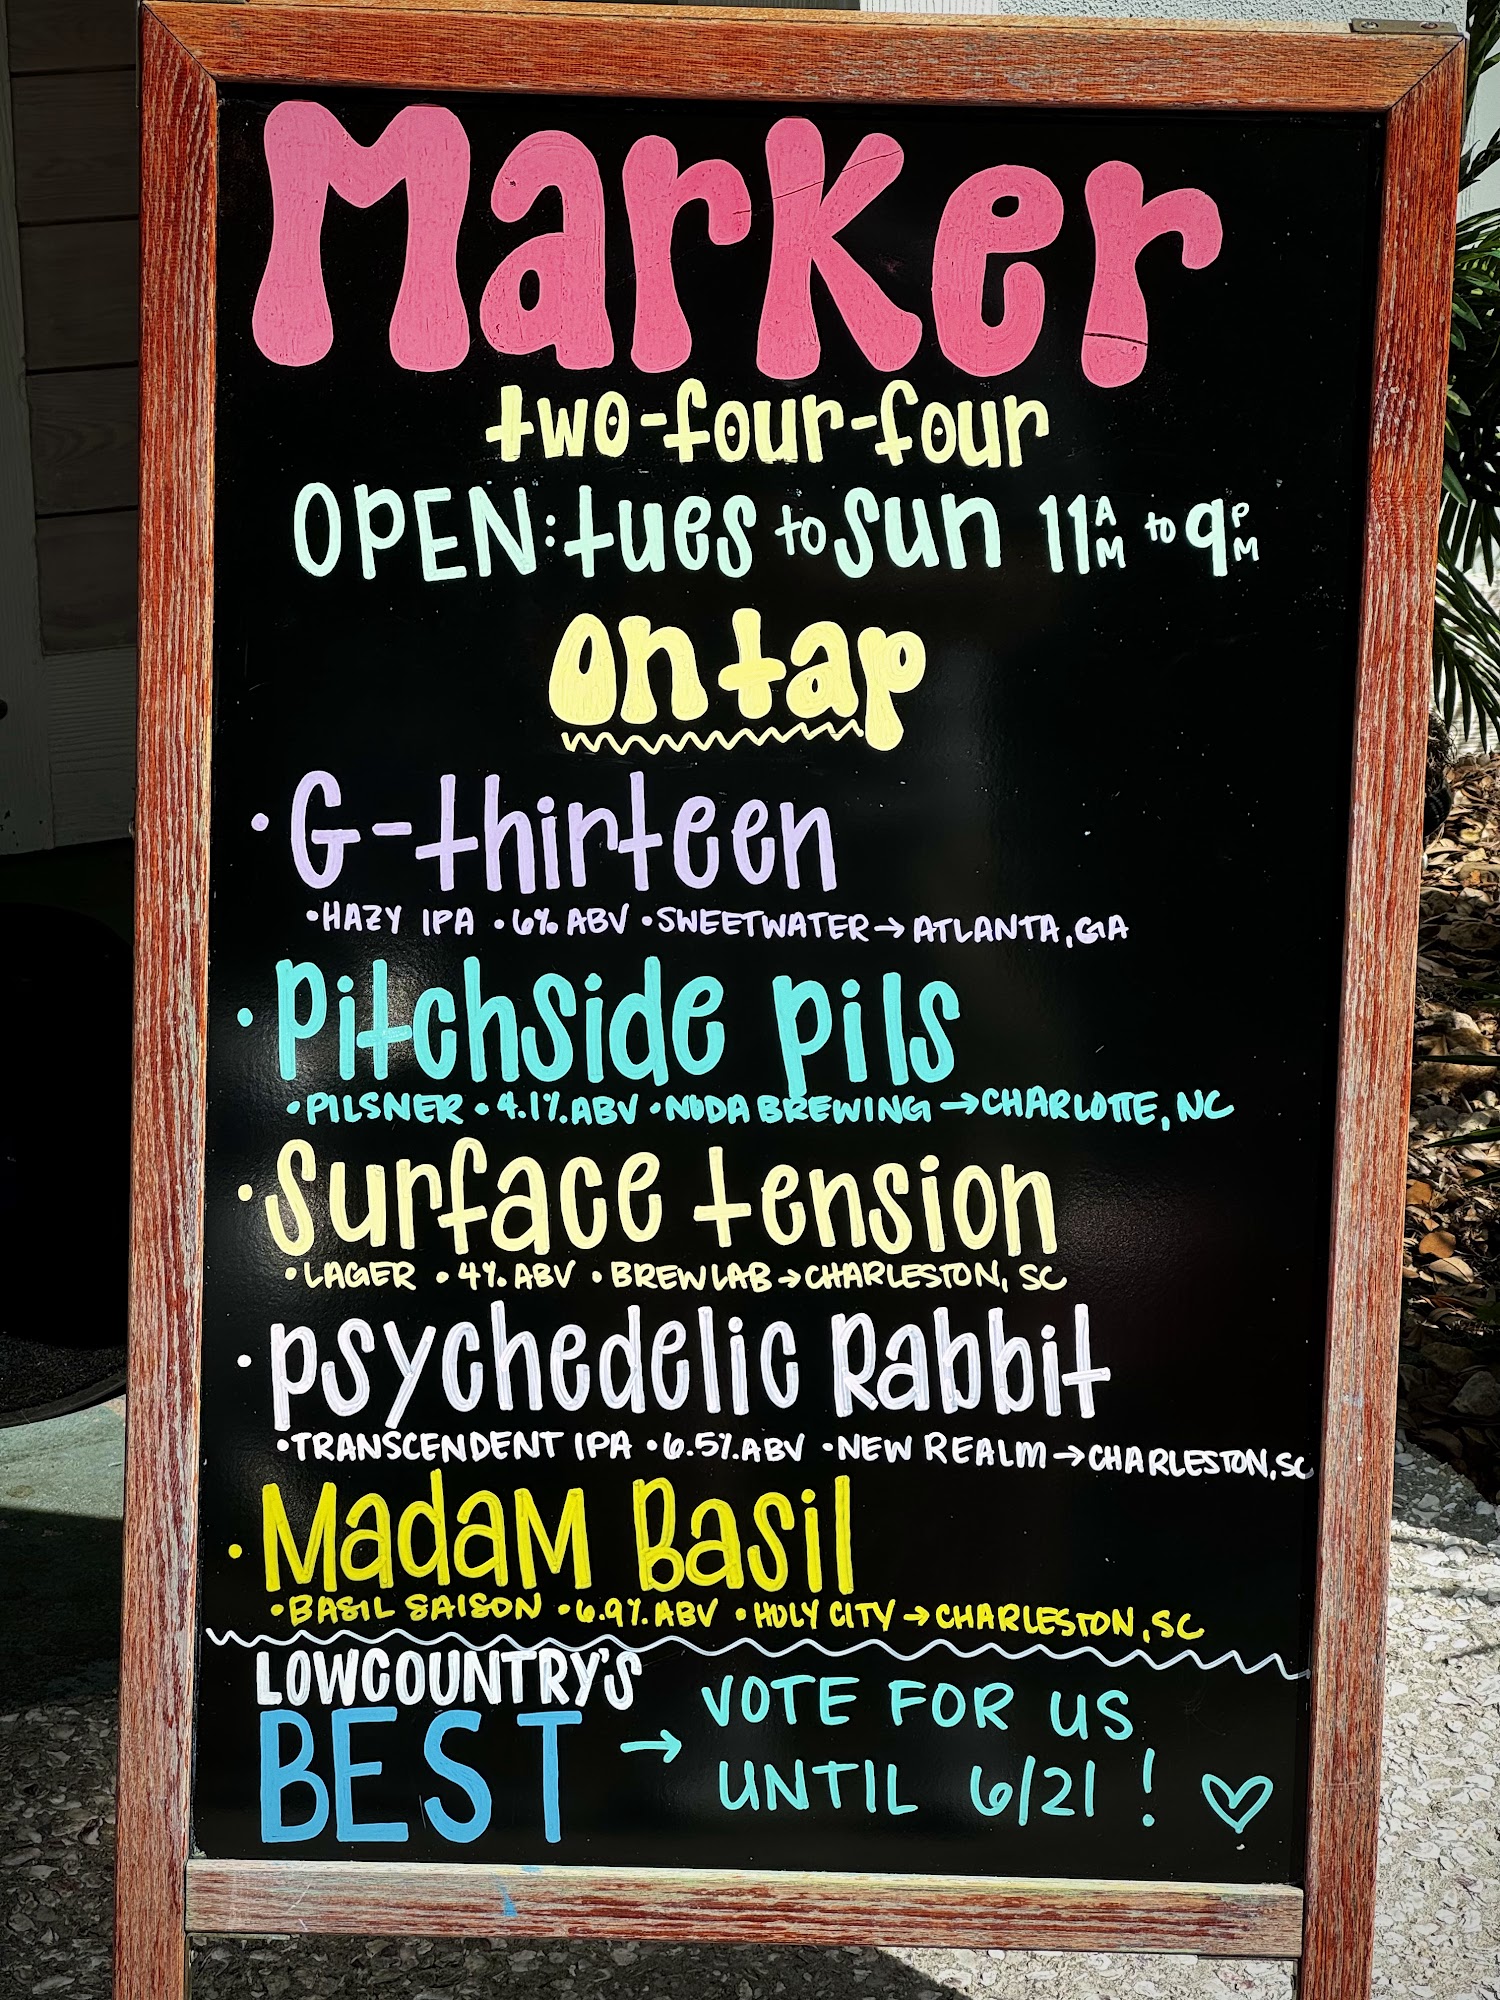 Marker
two-four-four
OPEN: tues to sun 11AM to 9PM
on tap
• G-thirteen
• HAZY IPA • 6% ABV • SWEETWATER → ATLANTA, GA
• Pitchside pils
• PILSNER • 4.1% ABV • NODA BREWING → CHARLOTTE, NC
• Surface tension
• LAGER • 4% ABV • BREWLAB → CHARLESTON, SC
• psychedelic Rabbit
• TRANSCENDENT IPA • 6.5% ABV • NEW REALM → CHARLESTON, SC
• Madam Basil
• BASIL SAISON • 6.9% ABV • HOLY CITY → CHARLESTON, SC
LOWCOUNTRY'S
BEST → VOTE FOR US
UNTIL 6/21 ! ♡